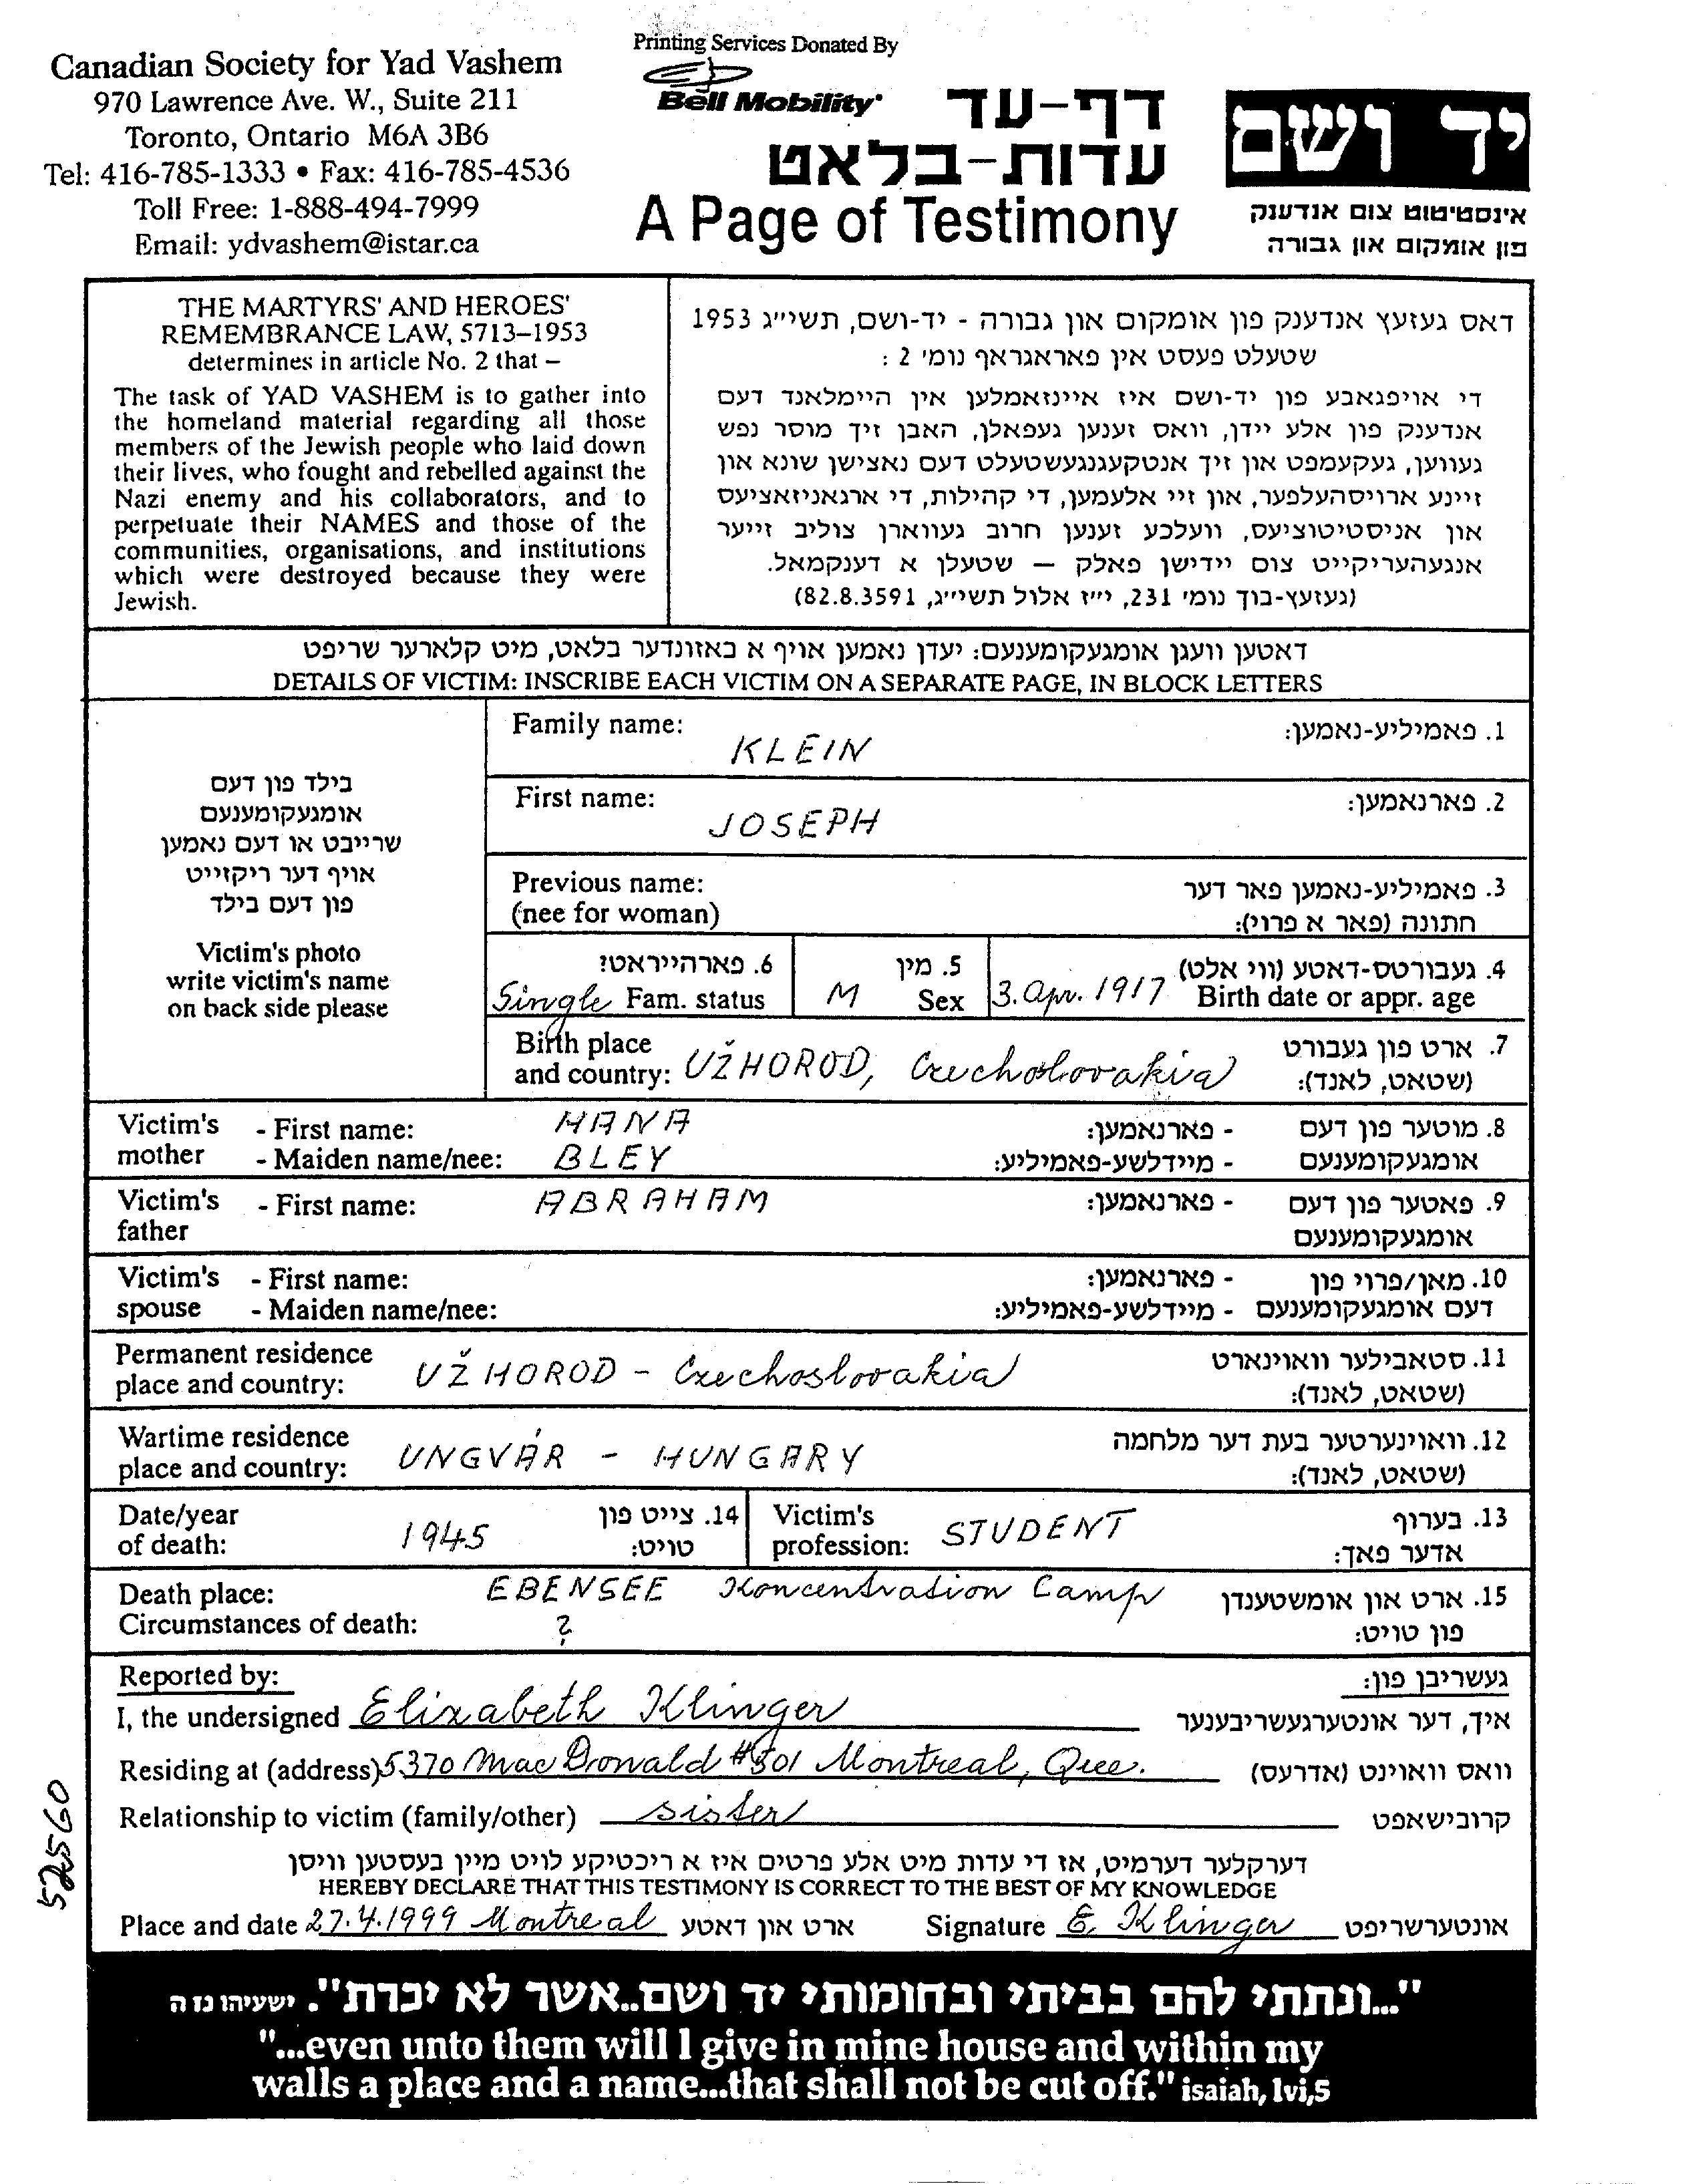 Canadian Society for Yad Vashem
970 Lawrence Ave. W., Suite 211
Toronto, Ontario M6A 3B6
Tel: 416-785-1333 • Fax: 416-785-4536
Toll Free: 1-888-494-7999
Email: ydvashem@istar.ca
Printing Services Donated By
Bell Mobility
דף-עד
עדות-בלאט
A Page of Testimony
יד ושם
אינסטיטוט צום אנדענק
פון אומקום און גבורה
THE MARTYRS' AND HEROES'
REMEMBRANCE LAW, 5713–1953
determines in article No. 2 that –
The task of YAD VASHEM is to gather into
the homeland material regarding all those
members of the Jewish people who laid down
their lives, who fought and rebelled against the
Nazi enemy and his collaborators, and to
perpetuate their NAMES and those of the
communities, organisations, and institutions
which were destroyed because they were
Jewish.
דאס געזעץ אנדענק פון אומקום און גבורה - יד-ושם, תשי״ג 1953
שטעלט פעסט אין פאראגראף נומ׳ 2 :
די אויפגאבע פון יד-ושם איז איינזאמלען אין היימלאנד דעם
אנדענק פון אלע יידן, וואס זענען געפאלן, האבן זיך מוסר נפש
געווען, געקעמפט און זיך אנטקעגנגעשטעלט דעם נאצישן שונא און
זיינע ארויסהעלפער, און זיי אלעמען, די קהילות, די ארגאניזאציעס
און אניסטיטוציעס, וועלכע זענען חרוב געווארן צוליב זייער
אנגעהעריקייט צום יידישן פאלק — שטעלן א דענקמאל.
(געזעץ-בוך נומ׳ 231, י״ז אלול תשי״ג, 82.8.3591)
דאטען וועגן אומגעקומענעם: יעדן נאמען אויף א באזונדער בלאט, מיט קלארער שריפט
DETAILS OF VICTIM: INSCRIBE EACH VICTIM ON A SEPARATE PAGE, IN BLOCK LETTERS
בילד פון דעם
אומגעקומענעם
שרייבט או דעם נאמען
אויף דער ריקזייט
פון דעם בילד
Victim's photo
write victim's name
on back side please
Family name: KLEIN 1. פאמיליע-נאמען:
First name: JOSEPH 2. פארנאמען:
Previous name: 3. פאמיליע-נאמען פאר דער
(nee for woman) חתונה (פאר א פרוי):
6. פארהייראט? 5. מין 4. געבורטס-דאטע (ווי אלט)
Single Fam. status M Sex 3. Apr. 1917 Birth date or appr. age
Birth place 7. ארט פון געבורט
and country: UŽHOROD, Czechoslovakia (שטאט, לאנד):
Victim's - First name: HANA - פארנאמען: 8. מוטער פון דעם
mother - Maiden name/nee: BLEY - מיידלשע-פאמיליע: אומגעקומענעם
Victim's - First name: ABRAHAM - פארנאמען: 9. פאטער פון דעם
father אומגעקומענעם
Victim's - First name: - פארנאמען: 10. מאן/פרוי פון
spouse - Maiden name/nee: - מיידלשע-פאמיליע: דעם אומגעקומענעם
Permanent residence 11. סטאבילער וואוינארט
place and country: UŽHOROD - Czechoslovakia (שטאט, לאנד):
Wartime residence 12. וואוינערטער בעת דער מלחמה
place and country: UNGVÁR - HUNGARY (שטאט, לאנד):
Date/year 14. צייט פון Victim's 13. בערוף
of death: 1945 טויט: profession: STUDENT אדער פאך:
Death place: EBENSEE Koncentration Camp 15. ארט און אומשטענדן
Circumstances of death: ? פון טויט:
Reported by: געשריבן פון:
I, the undersigned Elizabeth Klinger איך, דער אונטערגעשריבענער
Residing at (address) 5370 MacDonald #501 Montreal, Quee. וואס וואוינט (אדרעס)
Relationship to victim (family/other) sister קרובישאפט
דערקלער דערמיט, אז די עדות מיט אלע פרטים איז א ריכטיקע לויט מיין בעסטען וויסן
HEREBY DECLARE THAT THIS TESTIMONY IS CORRECT TO THE BEST OF MY KNOWLEDGE
Place and date 27.4.1999 Montreal ארט און דאטע Signature E. Klinger אונטערשריפט
52560
"...ונתתי להם בביתי ובחומותי יד ושם..אשר לא יכרת". ישעיהו נו ה
"...even unto them will I give in mine house and within my
walls a place and a name...that shall not be cut off." isaiah, lvi,5